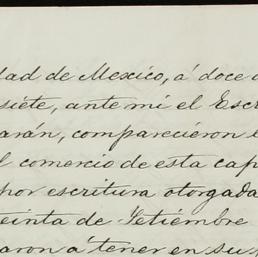 dad de Mexico, á doce d
siete, ante mi el Escr
arán, comparecieron e
l comercio de esta cap
por escritura otorgada
einta de Setiembre
aron á tener en su